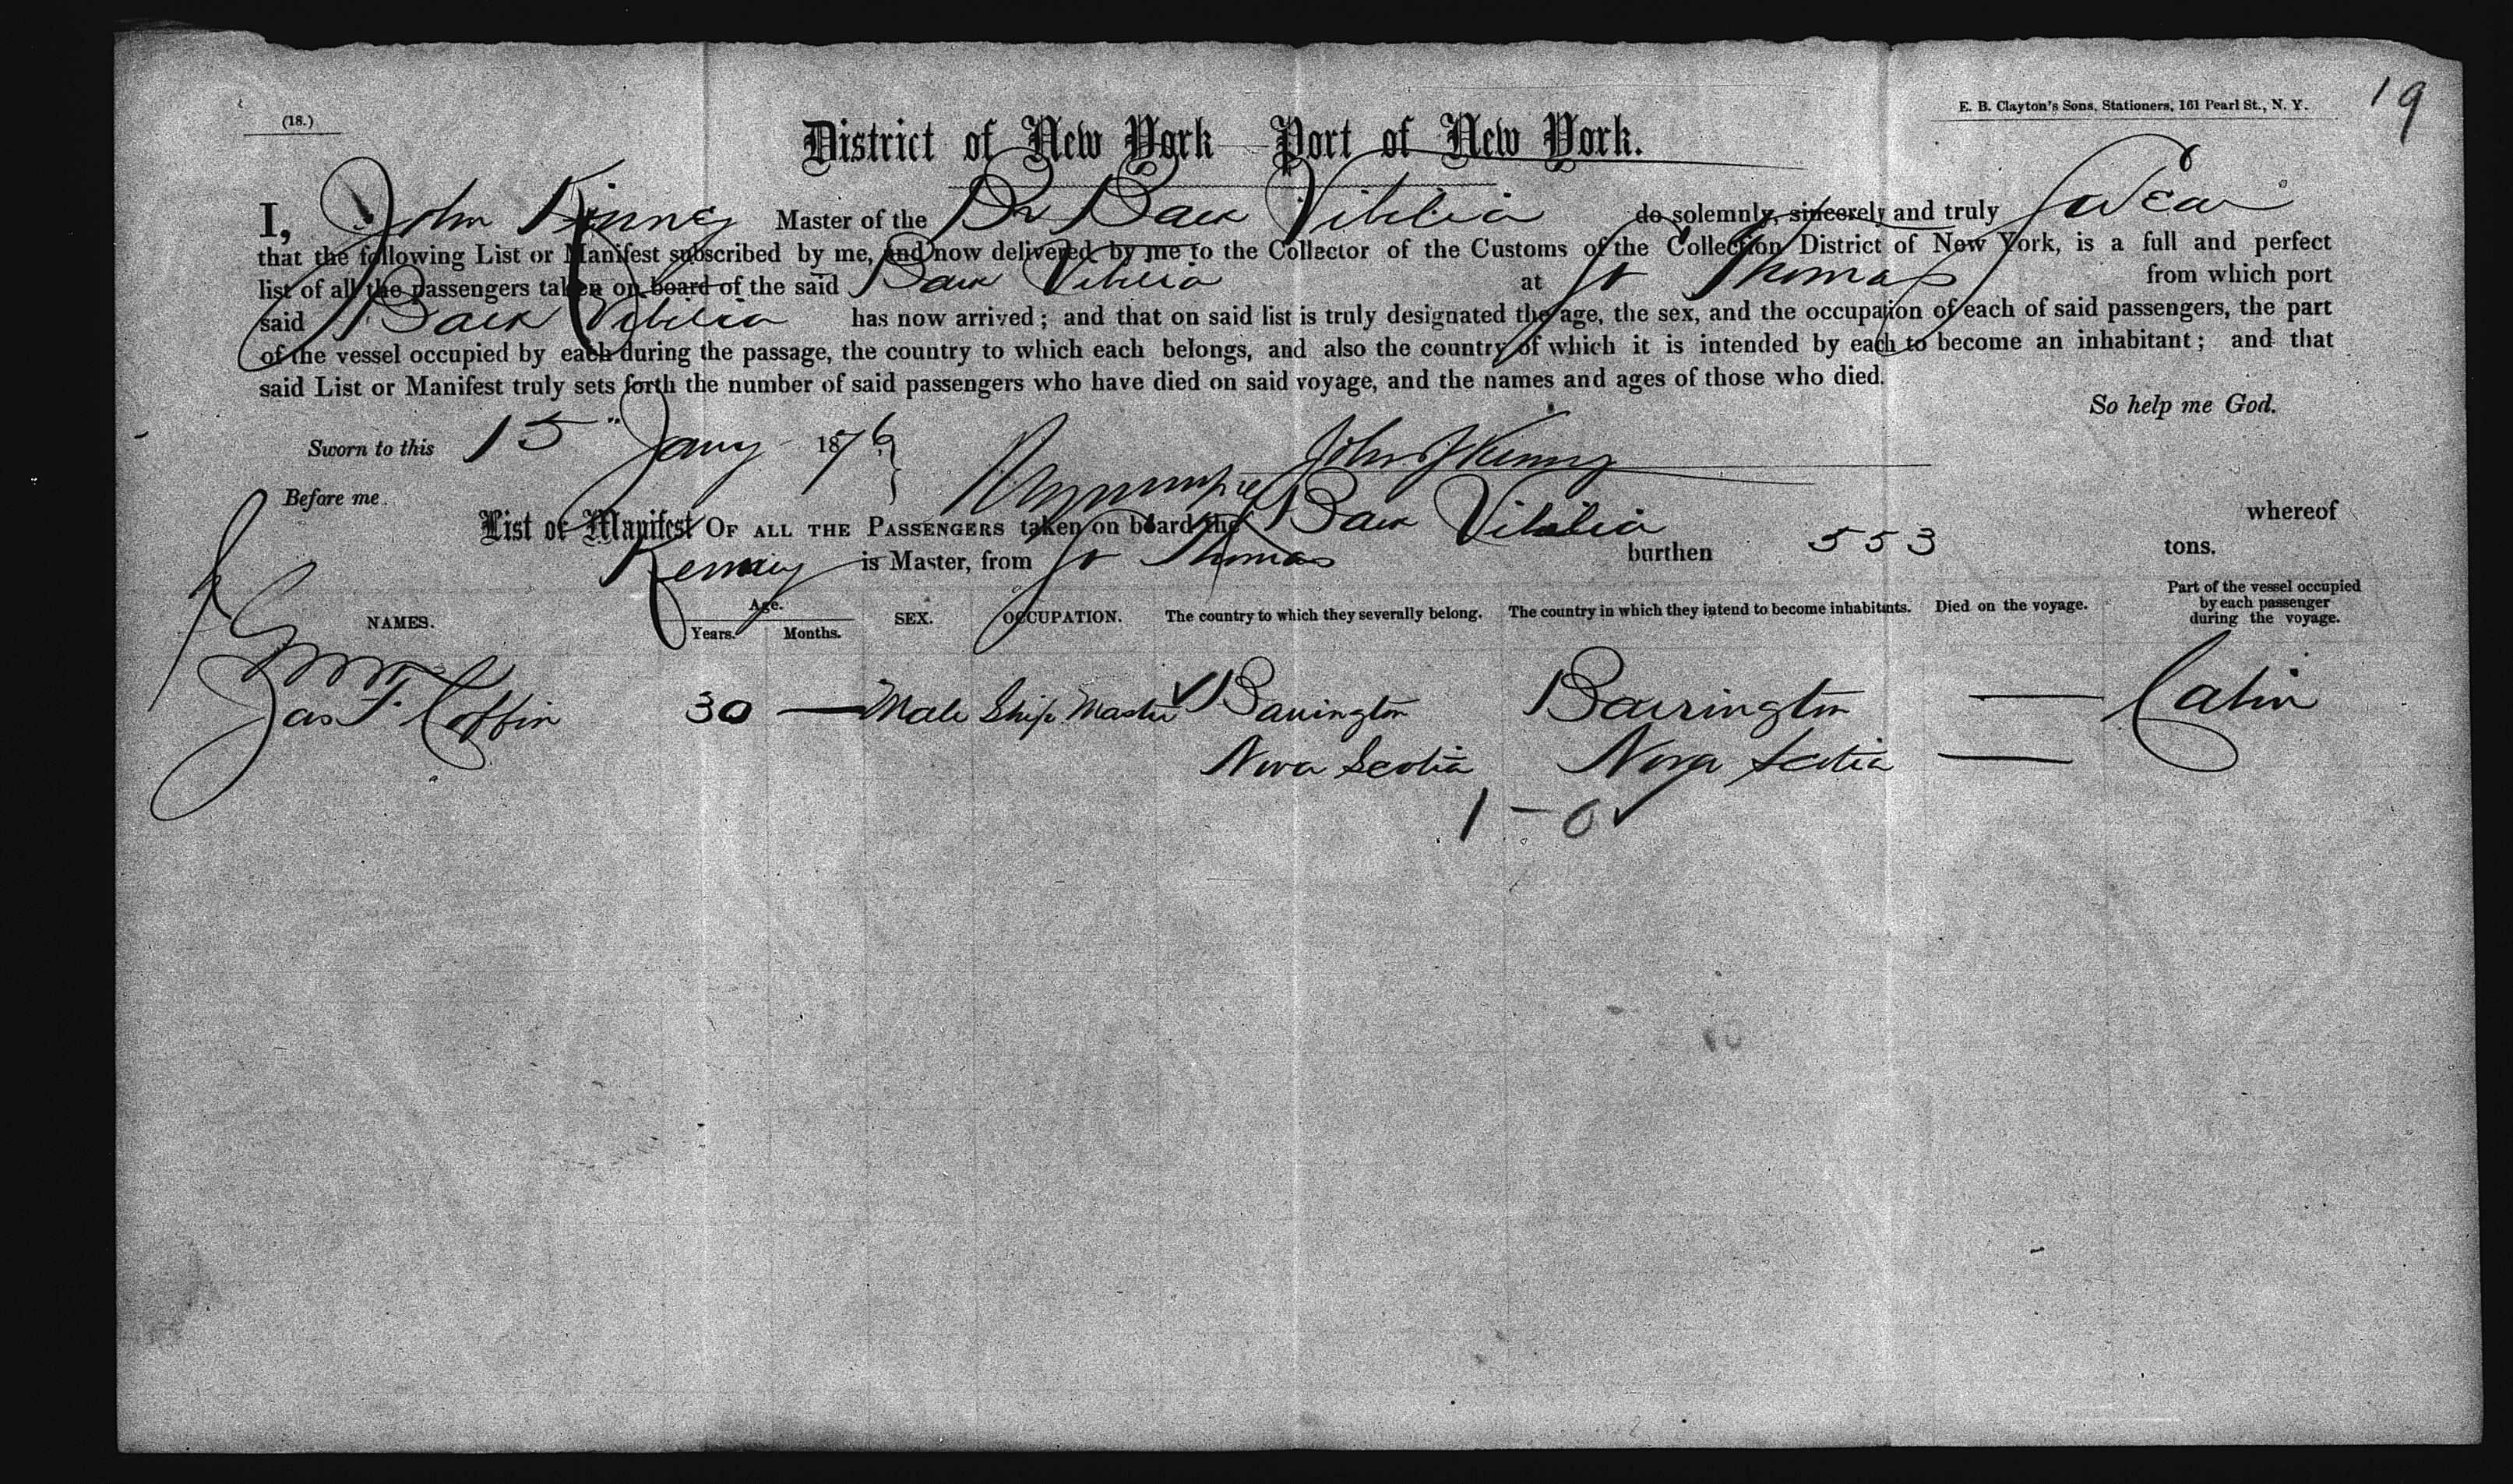 19
(18.)
E. B. Clayton's Sons, Stationers, 161 Pearl St., N. Y.
District of New York Port of New York.
I, John Kinney Master of the Br Bark Vibilia do solemnly, sincerely and truly swear
that the following List or Manifest subscribed by me, and now delivered by me to the Collector of the Customs of the Collection District of New York, is a full and perfect
list of all the passengers taken on board of the said Bark Vibilia at St Thomas from which port
said Bark Vibilia has now arrived; and that on said list is truly designated the age, the sex, and the occupation of each of said passengers, the part
of the vessel occupied by each during the passage, the country to which each belongs, and also the country of which it is intended by each to become an inhabitant; and that
said List or Manifest truly sets forth the number of said passengers who have died on said voyage, and the names and ages of those who died.
So help me God.
Sworn to this 15" Jany 1876 John Kinney
Before me
List or Manifest OF ALL THE PASSENGERS taken on board the Bark Vibilia whereof
Kenney is Master, from St Thomas burthen 553 tons.
NAMES. Age. Years. Months. SEX. OCCUPATION. The country to which they severally belong. The country in which they intend to become inhabitants. Died on the voyage. Part of the vessel occupied by each passenger during the voyage.
Jas F. Coffin 30 — Male Ship Master Barrington Barrington — Cabin
Nova Scotia Nova Scotia —
1 - 0